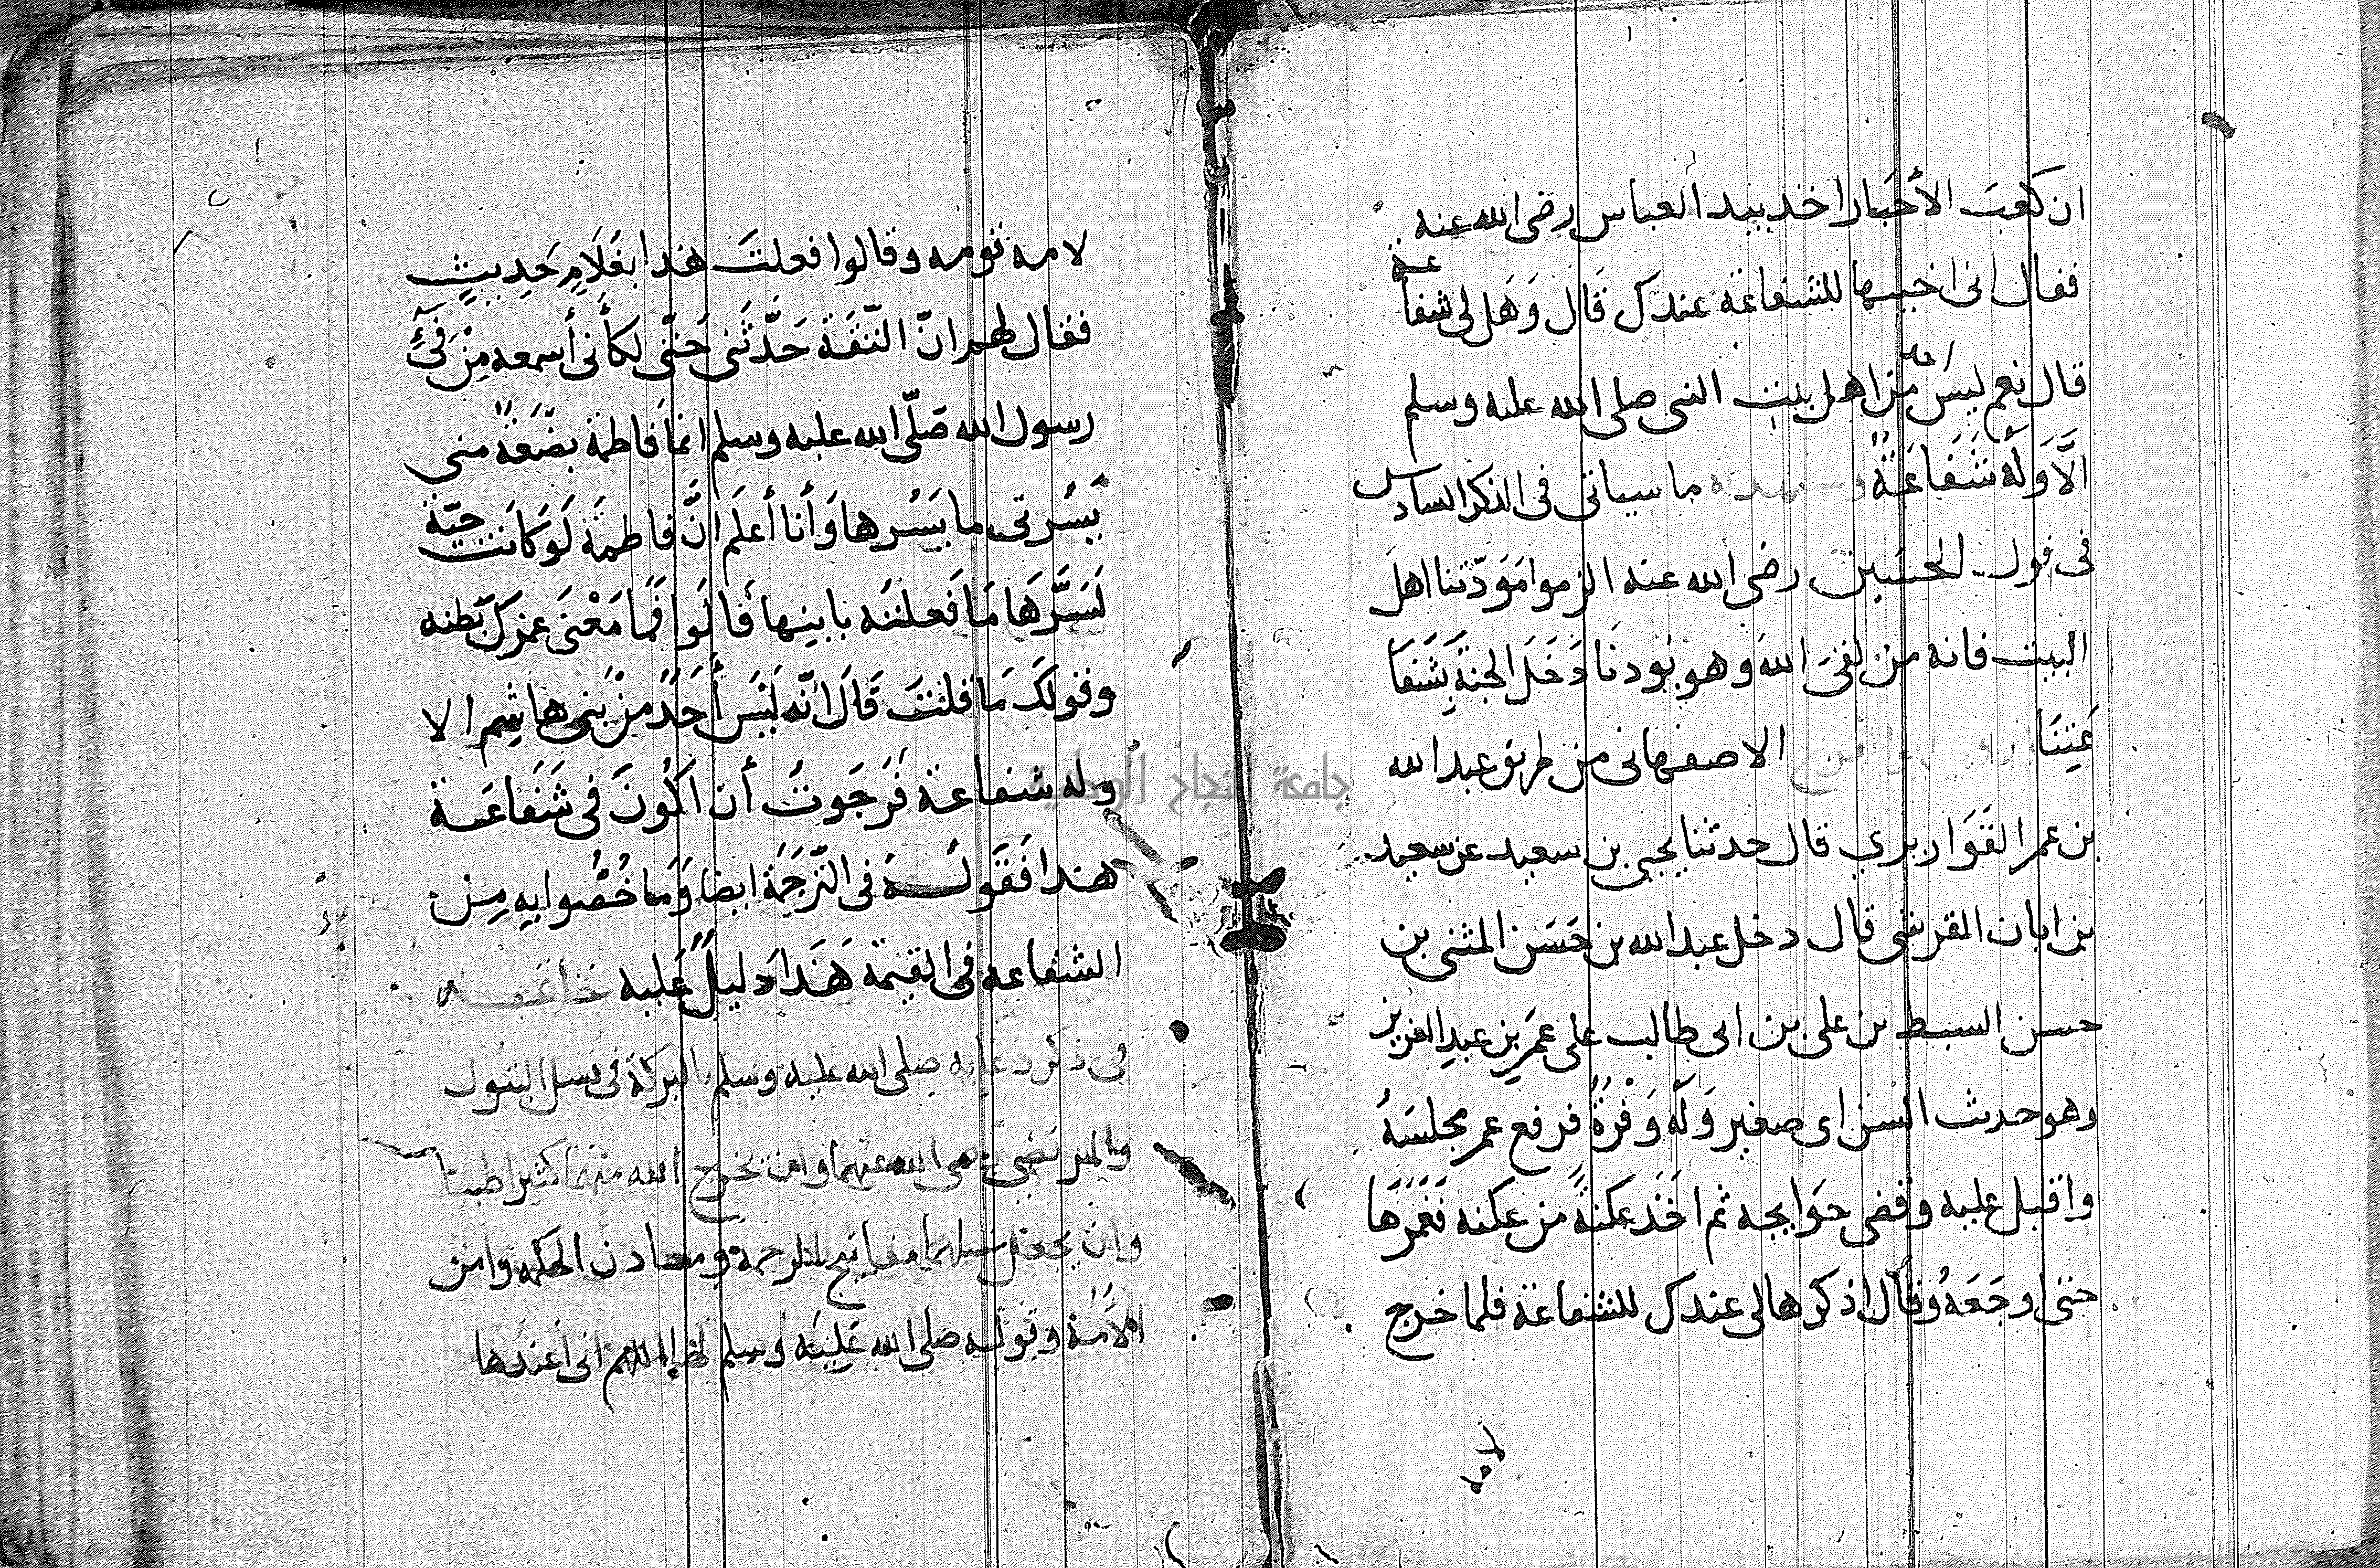 ان كعبَ الأحبار اخد بيد العباس رضى الله عنه
فقال انى اخبيها للشفاعة عندك قال وَهَل لى شفاعة
قال نعم ليسَ مّن اهل بيت النبى صلى الله عليه وسلم
الَّا وَلَهُ شَفَاعَةٌ ما سياتى فى الذكر السادس
فى قول الحسَين رضى الله عنه الزموا مَوَدّتنا اهلَ
البيت فانه من لقىَ الله وهو يودنَا دَخَلَ الجنةَ بِشَفَا
عَتِنَا الاصفهانى من طريق عبد الله
بن عمر القَوَاريري قال حدثنا يحيى بن سعيد عن سعيد
بن ابان القرشى قال دخل عبد الله بن حَسَن المثنى بن
حسن السبط بن على بن ابى طالب على عمَر بن عبدِ العزيز
وهو حدث السن اى صغير وَلَه وَفْرَةٌ فرفع عمر مجلسَهُ
واقبل عليه وقضى حوَايجه ثم اخَذ عكنةً من عكنه فَغَمَزَهَا
حتى اوجَعَهُ وقال اذكرها لى عندك للشفاعة فلما خرج
لامه
لامه قومه وقالوا فعلتَ هذا بغُلَامٍ حَديثٍ
فقال لهم انّ الثّقَة حَدَّثَنى حَتّى لكأَنى أسمعه مِنْ فِىّ
رسول الله صَلّى الله عليه وسلم انمَا فاطمة بضْعَةٌ منى
يَسُرنى ما يَسُرها وَأنا أعلَم انَّ فاطمةَ لَو كانت حيّة
لَسَرَّهَا مَا فَعلتُه بابنِها قَالَوا فَما مَعْنى غمزك بَطنه
وقولكَ مَا قلتَ قَالَ انّه لَيْسَ أَحَدٌ مِنْ بَنى هاشِم الا
وله شفاعة فَرَجَوتُ أن اكُونَ فى شَفَاعَة
هذا فَقَولُـهُ فى التّرجَمَة ايضا وَما خُصُّوا به مِن
الشفاعه فى القيمة هَذَا دَليلٌ عَليه خاتمـه
فى ذكر دعايه صلى الله عليه وسلم بالبركة فى نسل البتول
والمرتضى رضى الله عنهما وان يخرج الله منهما كثيرا طيبا
وان يجعل نسلهما مفاتيح الرحمة ومعادن الحكمه وامن
الأمة وقولـه صلى الله عليه وسلم اللهم انى اعيذها